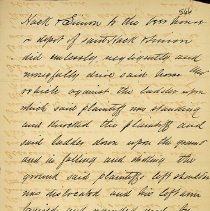 Hack & Simon to the box house
or depot of said Hack & Simon
did carelessly, negligently and
wrongfully drive said horse
vehicle against the ladder upon
which said plaintiff was standing
and throwed the plaintiff and
said ladder down upon the ground
and in falling and striking the
ground said plaintiff's left shoulder
was dislocated and his left arm